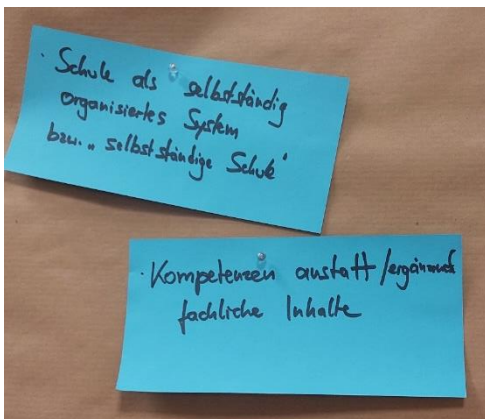 · Schule als selbstständig
organisiertes System
bzw. „selbstständige Schule"
· Kompetenzen anstatt/ergänzend
fachliche Inhalte